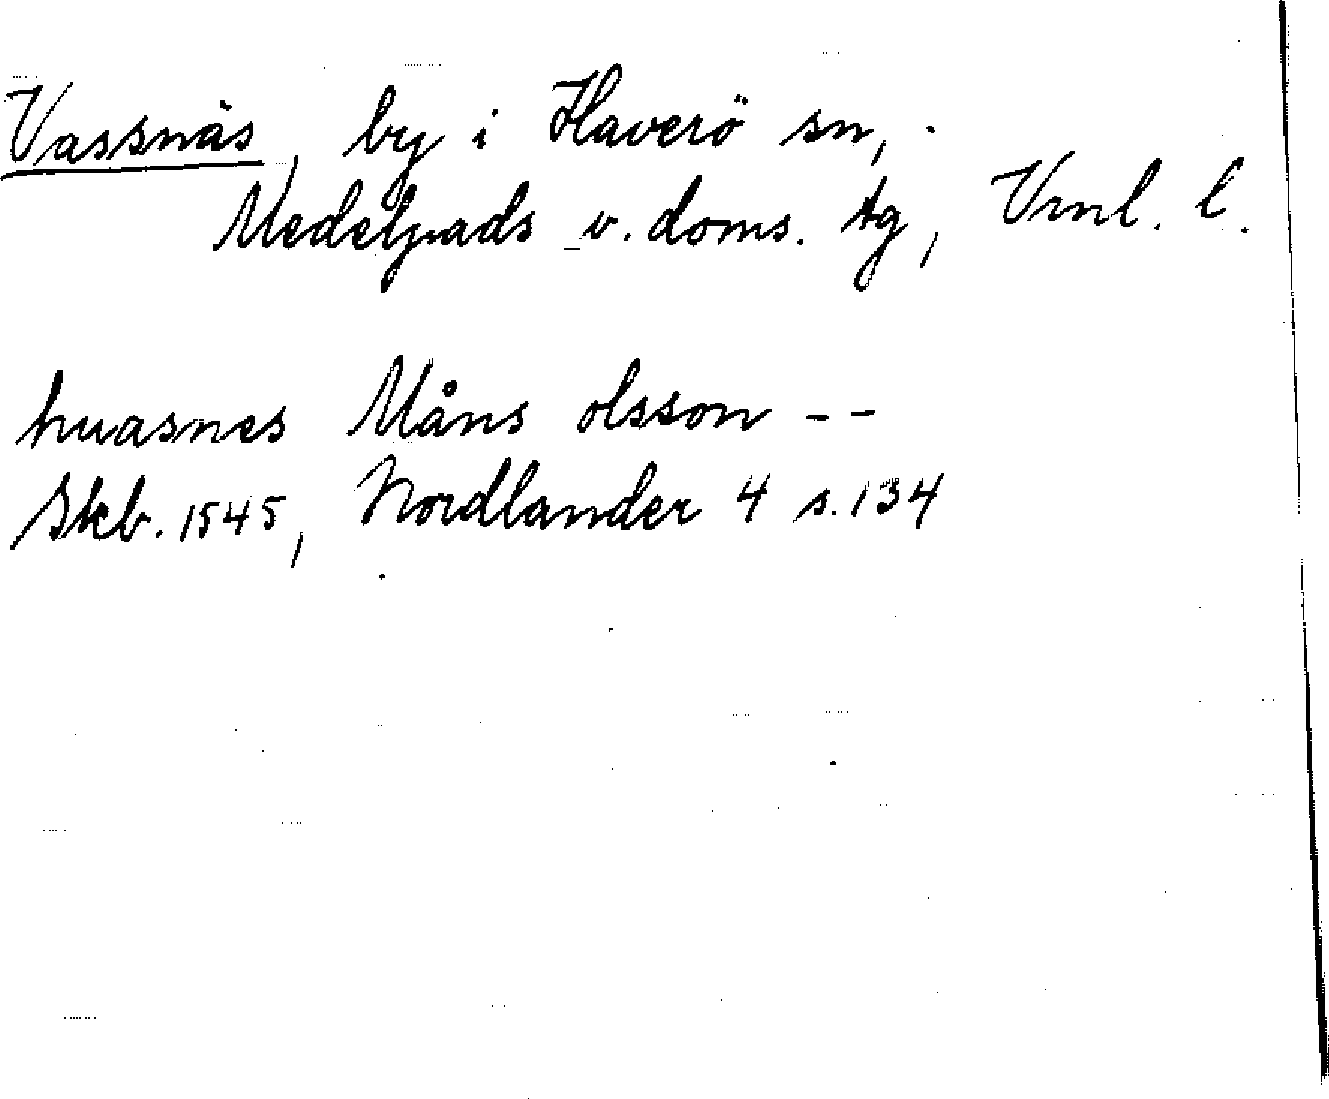 Vassnäs, by i Haverö sn,
Medelpads v. doms. tg, Vnl. l.
huasnes Måns olsson - -
Skb. 1545, Nordlander 4 s. 134